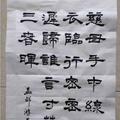 慈母手中線
衣臨行密密
遲歸誰言寸草
三春暉